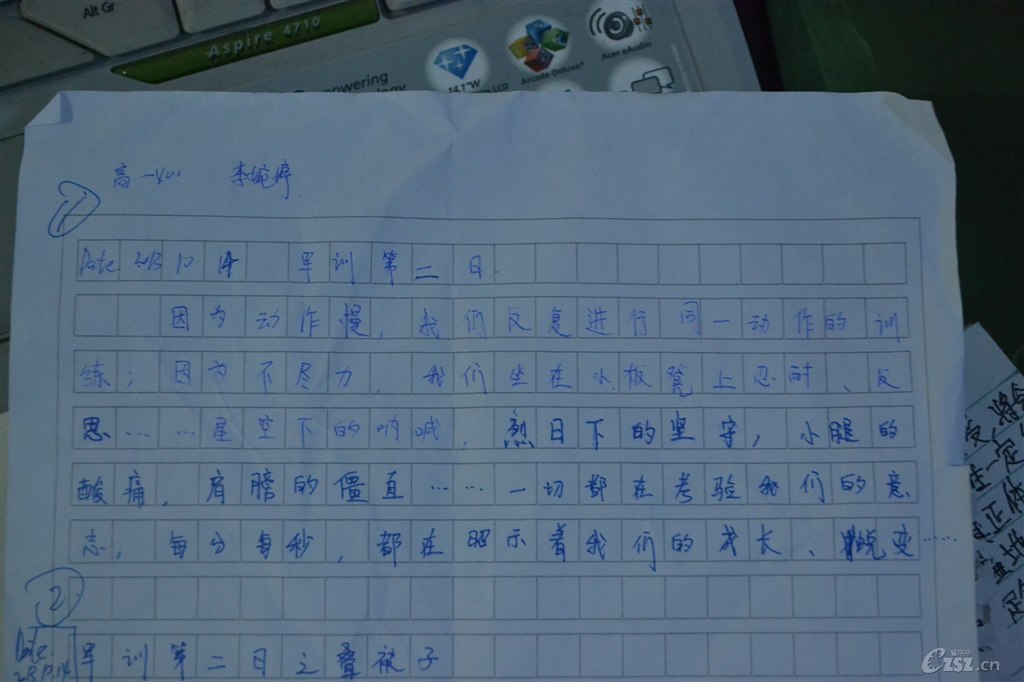 Alt Gr
Aspire 4710
powering
14.1"W
Arcade Deluxe
Acer eAudio
高一 李婉婷
①
Date 2013 10 14 军训第二日.
因为动作慢，我们反复进行同一动作的训
练；因为不尽力，我们坐在小板凳上忍耐、反
思……星空下的呐喊，烈日下的坚守，小腿的
酸痛，肩膀的僵直……一切都在考验我们的意
志，每分每秒，都在昭示着我们的成长、蜕变……
②
Date
军训第二日之叠被子
正体
zsz.cn